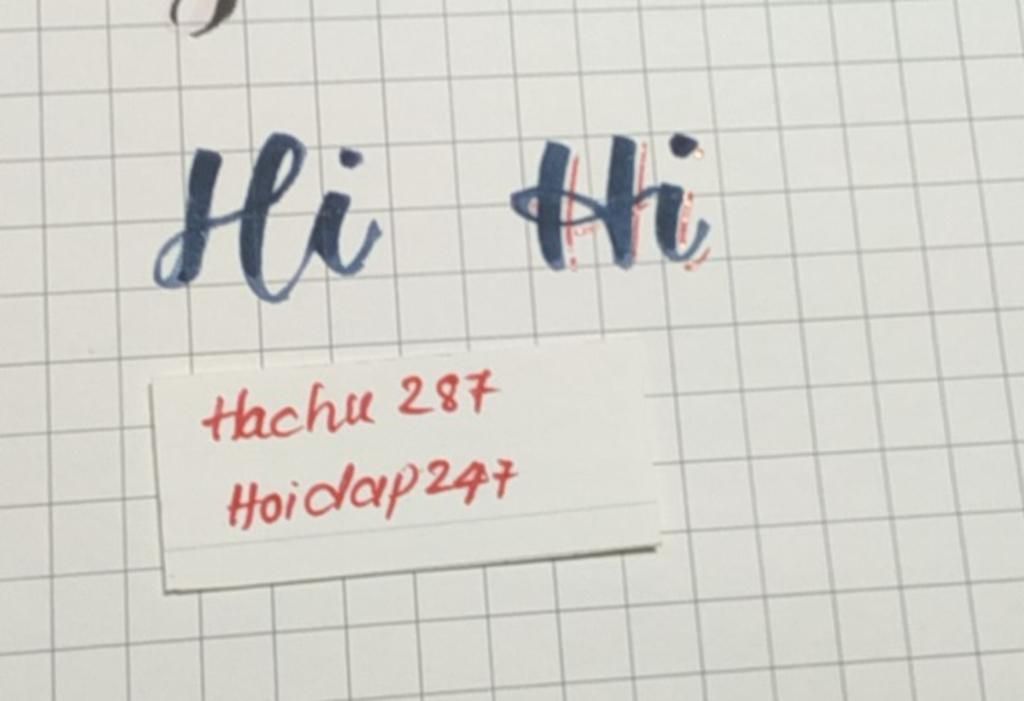 Hi Hi
Hachu 287
Hoidap247